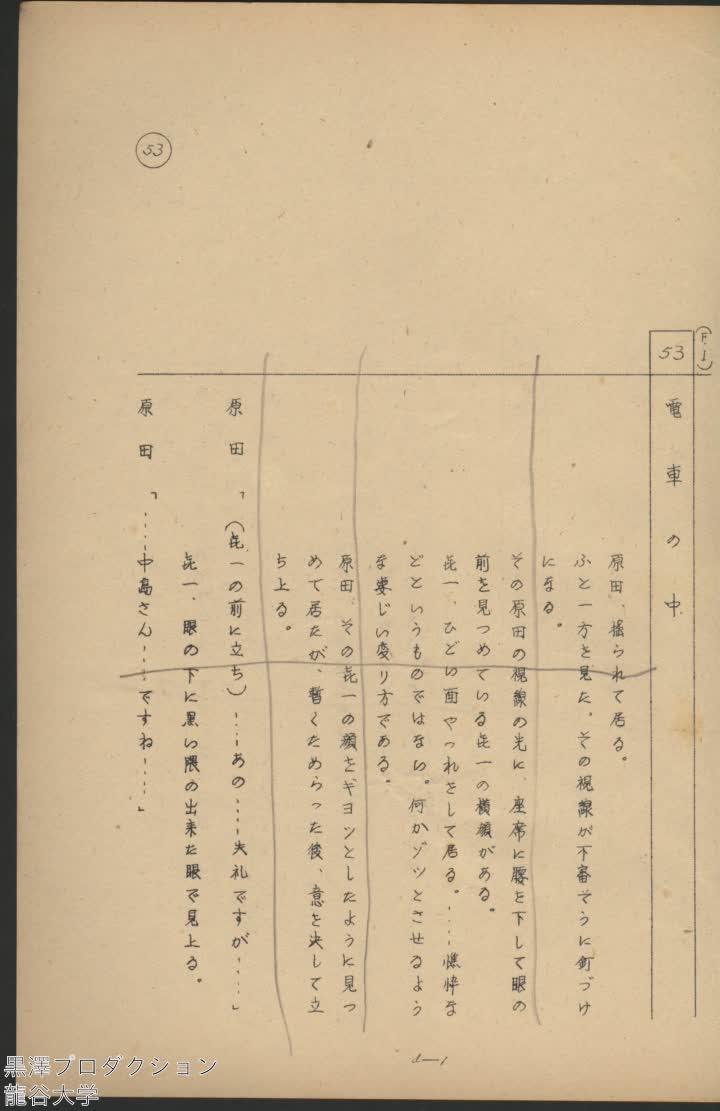 (F・I)
53 電車の中
原田、揺られて居る。
ふと一方を見た。その視線が不審そうに釘づけ
になる。
その原田の視線の先に、座席に腰を下して眼の
前を見つめている㐂一の横顔がある。
㐂一、ひどい面やつれをして居る。……憔悴な
どというものではない。何かゾッとさせるよう
な凄じい変り方である。
原田、その㐂一の顔をギヨッとしたように見つ
めて居たが、暫くためらった後、意を決して立
ち上る。
原田「(㐂一の前に立ち)……あの……失礼ですが……」
㐂一、眼の下に黒い隈の出来た眼で見上る。
原田「……中島さん……ですね……」
53
黒澤プロダクション
龍谷大学